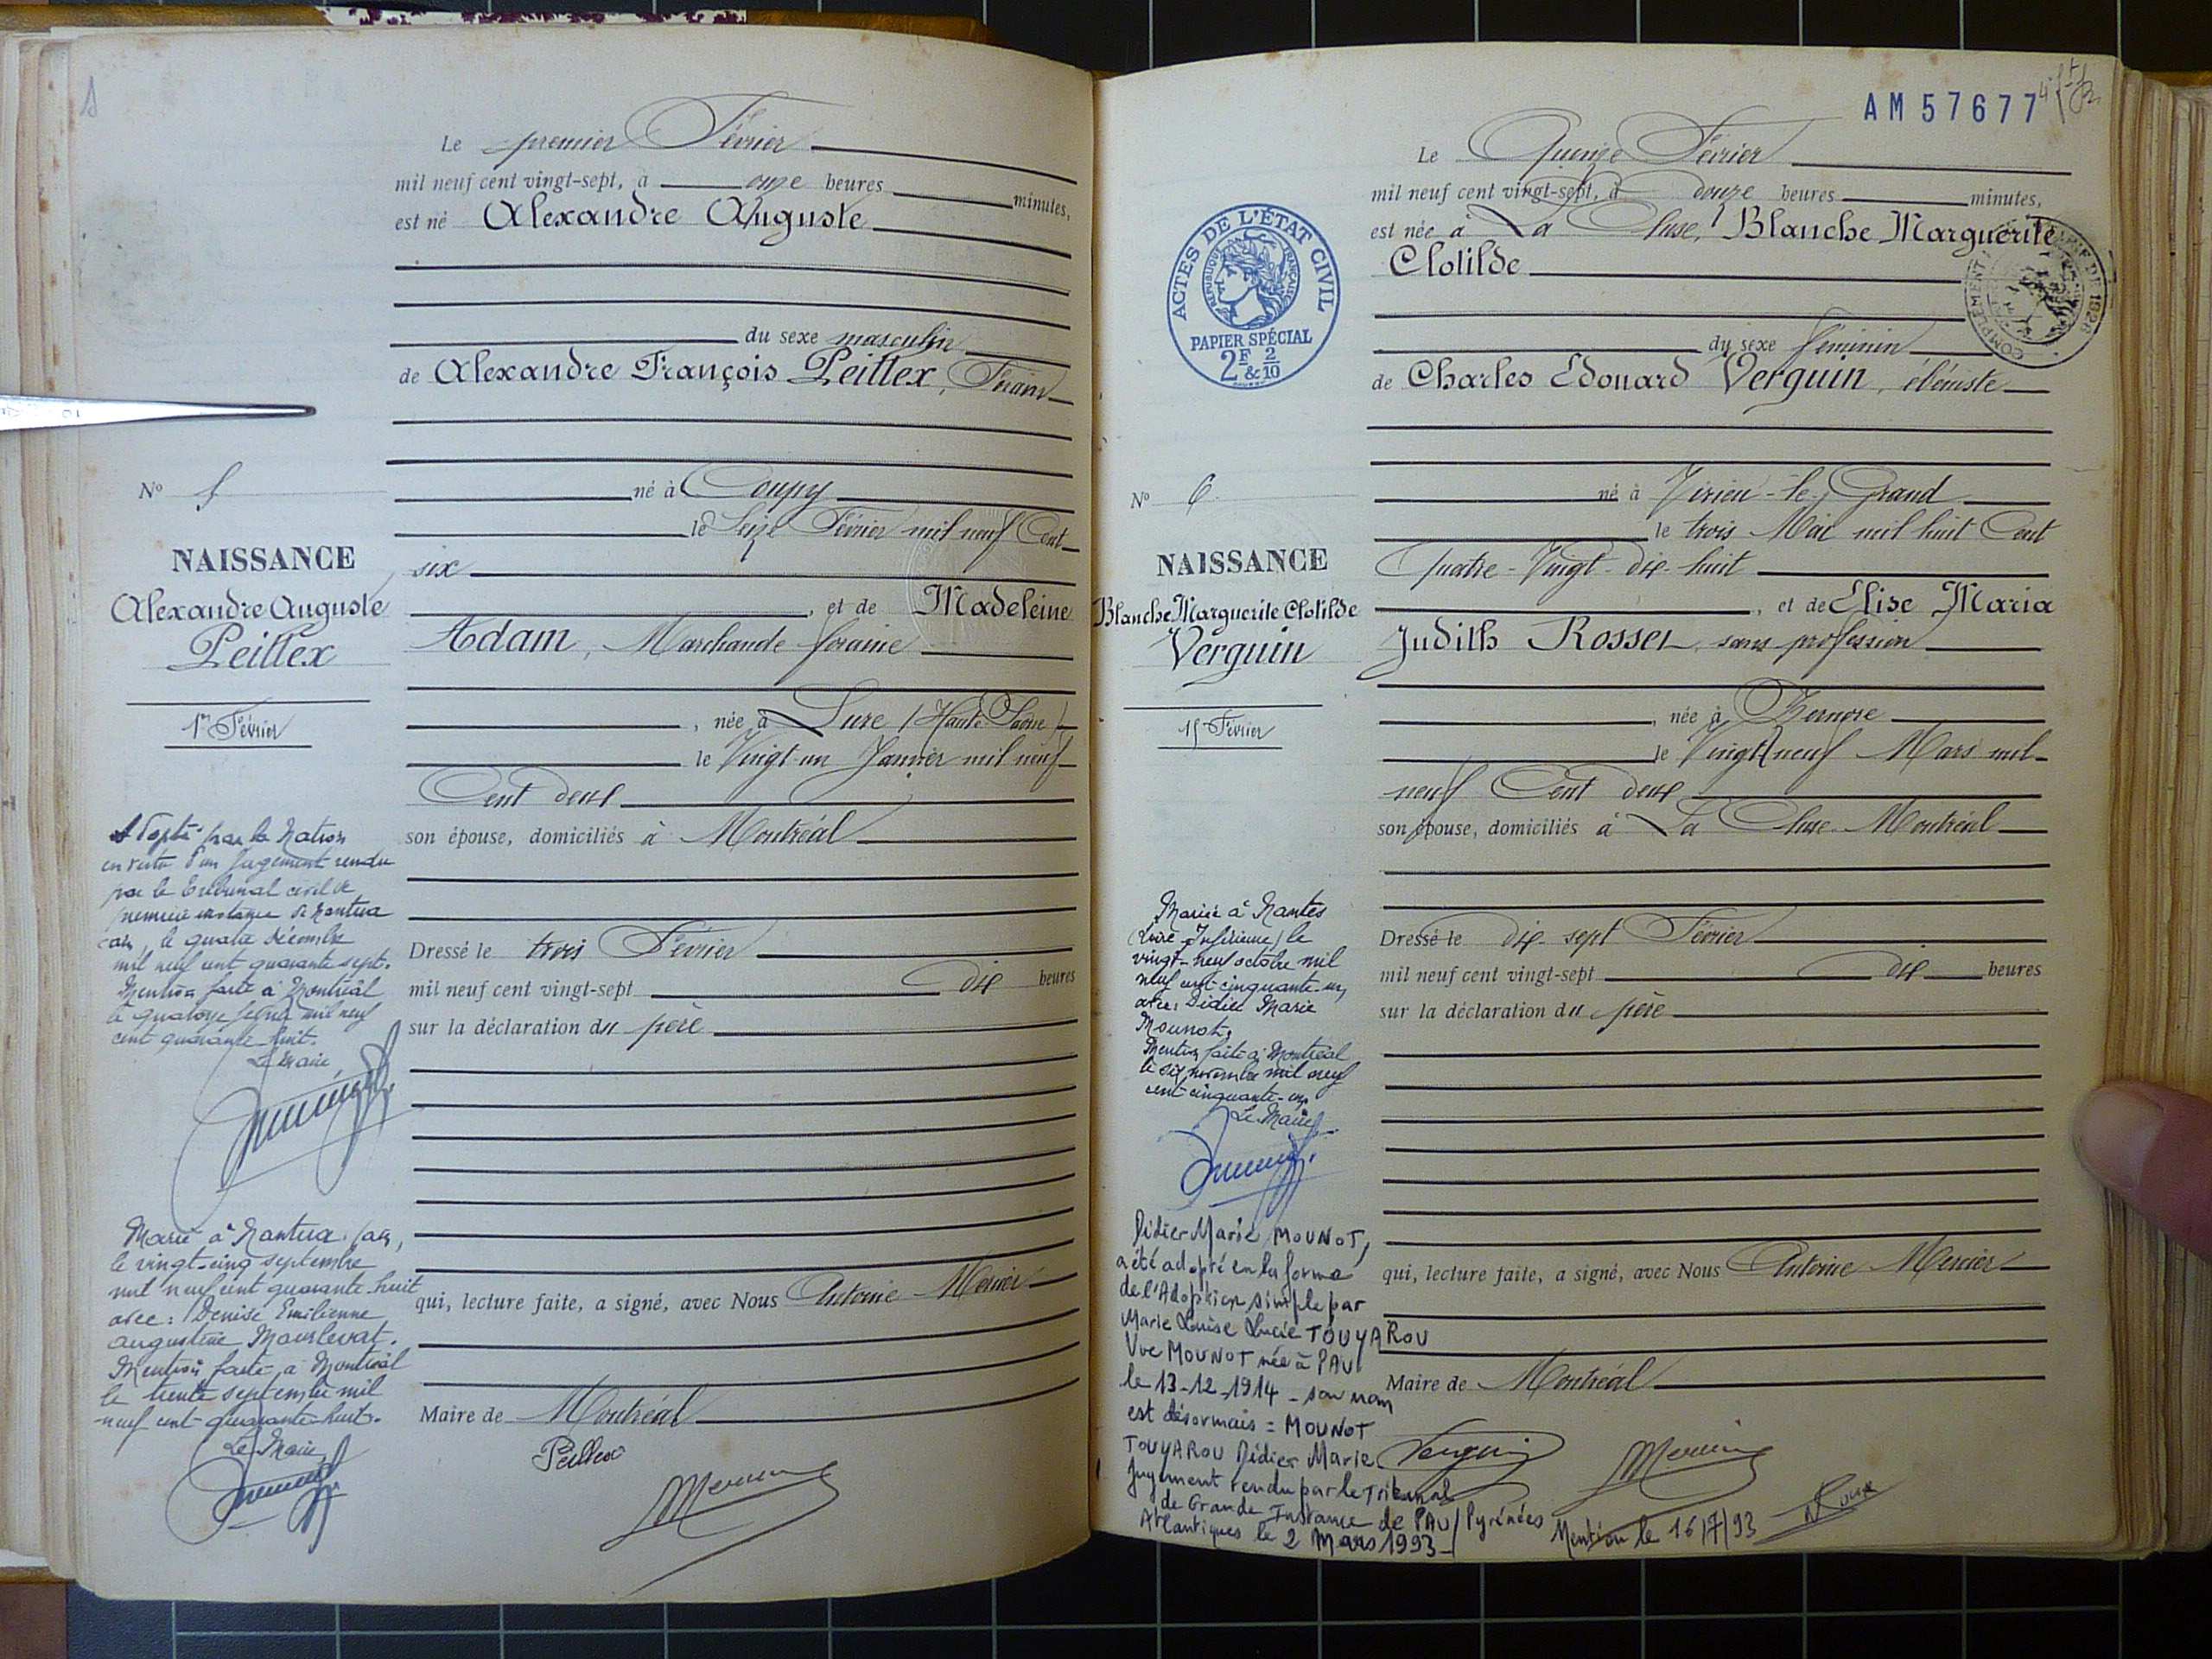 Le premier Février
mil neuf cent vingt-sept, à onze heures minutes,
est né Alexandre Auguste
du sexe masculin
de Alexandre François Peillex, Forain
né à Coupy
le Seize Février mil neuf Cent
six
, et de Madeleine
Adam, Marchande foraine
, née à Lure (Haute-Saône)
le Vingt-un Janvier mil neuf
Cent deux
son épouse, domiciliés à Montréal
Dressé le trois Février
mil neuf cent vingt-sept dix heures
sur la déclaration du père
qui, lecture faite, a signé, avec Nous Antoine Mercier
Maire de Montréal
Peillex
Mercier
No 5
NAISSANCE
Alexandre Auguste
Peillex
1er Février
Adopté par la Nation
en vertu d'un jugement rendu
par le Tribunal civil de
première instance de Nantua
ain, le quatre décembre
mil neuf cent quarante sept.
Mention faite à Montréal
le quatorze février mil neuf
cent quarante-huit.
Le Maire,
Marié à Nantua (ain),
le vingt-cinq septembre
mil neuf cent quarante-huit
avec : Denise Emilienne
augustine
Mention faite à Montréal
le trente septembre mil
neuf cent quarante-huit.
Le Maire,
AM 57677
Le Quinze Février
mil neuf cent vingt-sept, à douze heures minutes,
est née à La Cluse, Blanche Marguerite
Clotilde
du sexe féminin
de Charles Edouard Verguin, ébéniste
né à Virieu-le-Grand
le trois Mai mil huit Cent
Quatre-Vingt-dix-huit
, et de Elise Maria
Judith Rosset sans profession
, née à Bernore
le Vingt neuf Mars mil
neuf Cent deux
son épouse, domiciliés à La Cluse-Montréal
Dressé le dix-sept Février
mil neuf cent vingt-sept dix heures
sur la déclaration du père
qui, lecture faite, a signé, avec Nous Antoine Mercier
Maire de Montréal
Verguin
Mercier
ACTES DE L'ÉTAT CIVIL
RÉPUBLIQUE FRANÇAISE
PAPIER SPÉCIAL
2F & 2/10
COMPLÉMENT DE 1926
No 6
NAISSANCE
Blanche Marguerite Clotilde
Verguin
15 Février
Mariée à Nantes
(Loire-Inférieure) le
vingt-neuf octobre mil
neuf cent cinquante-un,
avec Didier Marie
Mounot.
Mention faite à Montréal
le six novembre mil neuf
cent cinquante-un.
Le Maire,
Didier Marie MOUNOT,
a été adopté en la forme
de l'Adoption simple par
Marie Louise Lucie TOUYAROU
Vve MOUNOT née à PAU
le 13-12-1914 - son nom
est désormais = MOUNOT
TOUYAROU Didier Marie
Jugement rendu par le Tribunal
de Grande Instance de PAU / Pyrénées
Atlantiques le 2 Mars 1993 -
Mention le 16/7/93